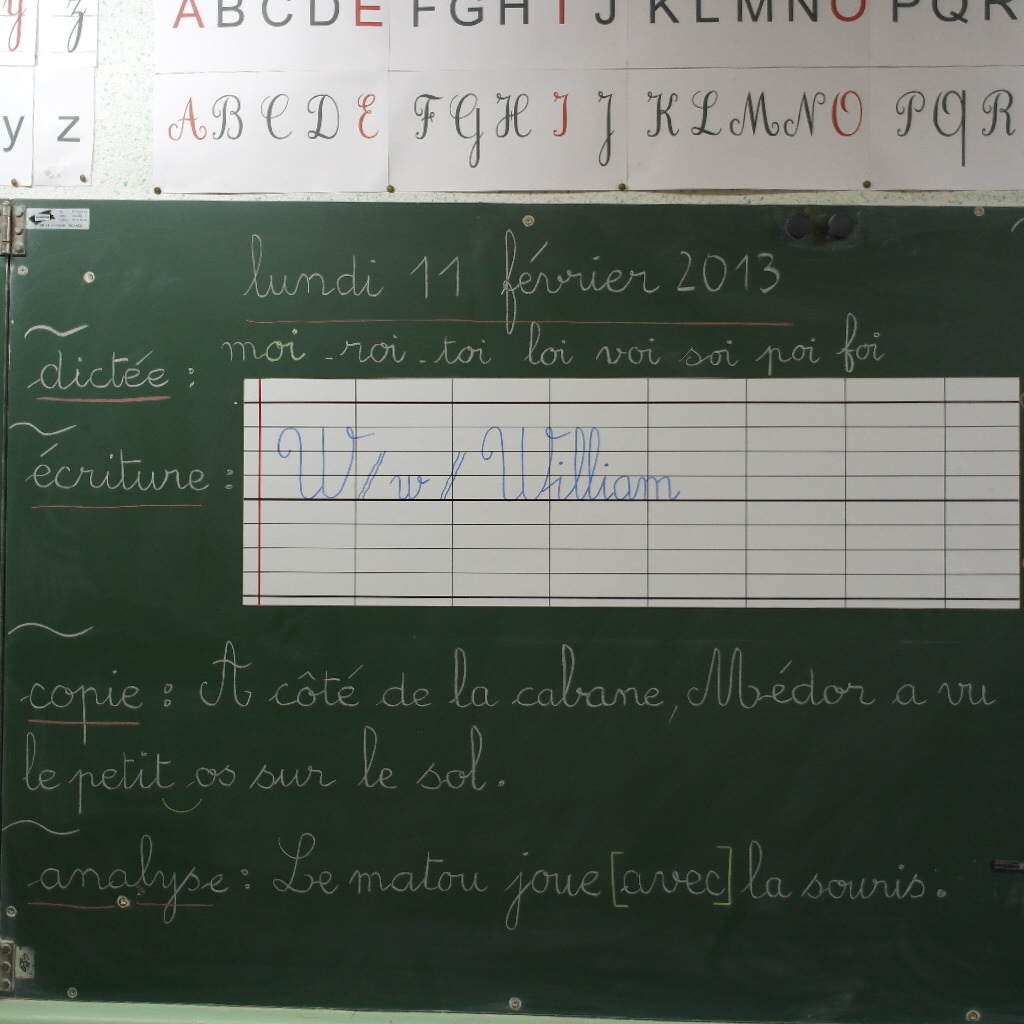 y z
A B C D E F G H I J K L M N O P Q R
y z
A B C D E F G H I J K L M N O P Q R
lundi 11 février 2013
dictée : moi - roi - toi loi voi soi poi foi
écriture : W / w / William
copie : A côté de la cabane, Médor a vu
le petit os sur le sol.
analyse : Le matou joue [avec] la souris.